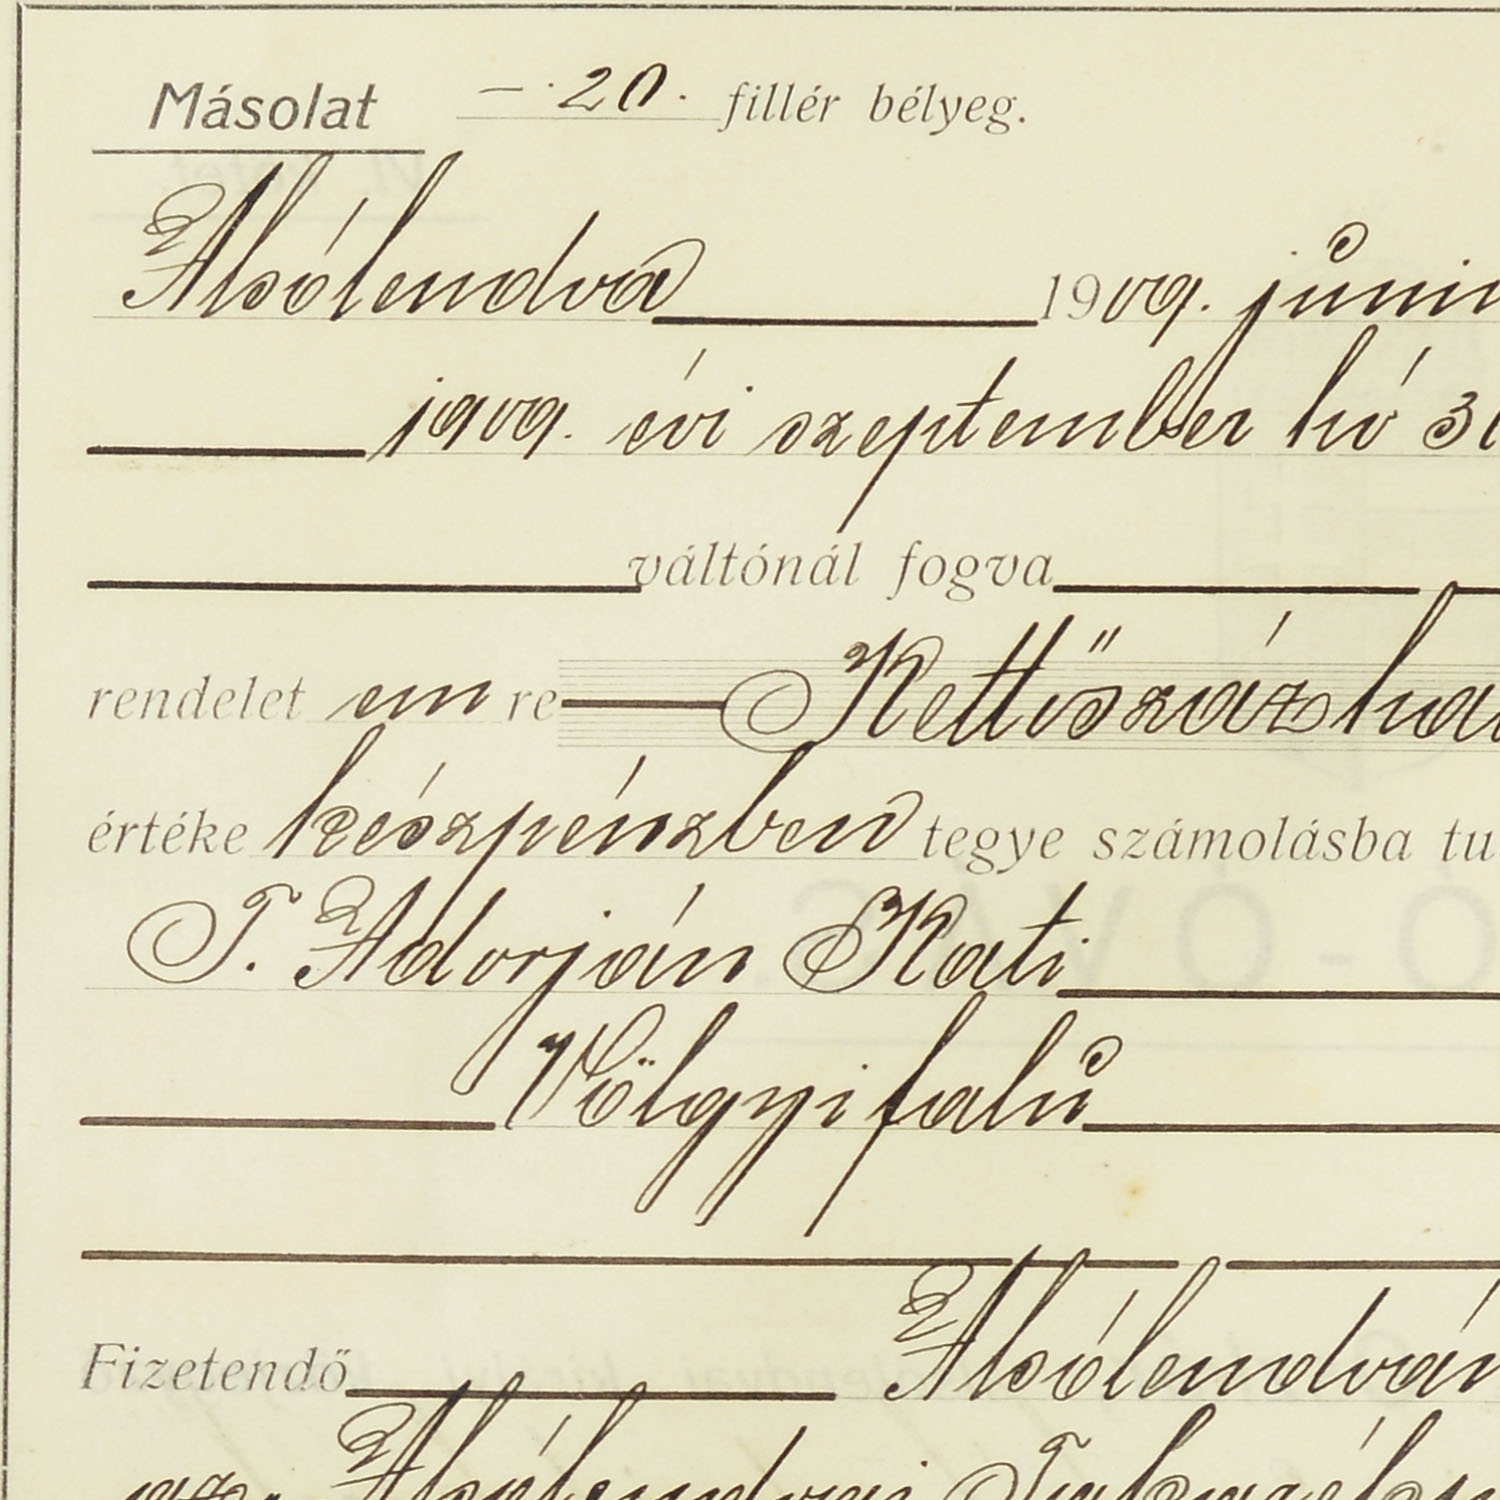 Másolat – 20. fillér bélyeg.
Alsólendva 1909. júni
1909. évi szeptember hó 3
váltónál fogva
rendelet em re Kettőszáz ha
értéke készpénzben tegye számolásba tu
T. Adorján Kati
Völgyifalu
Fizetendő Alsólendván
az Alsólendvai Takarék